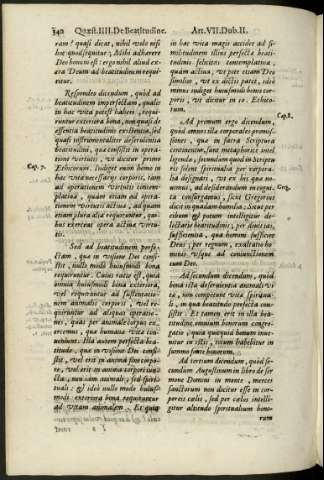 340 Quæst. IIII. De Beatitudine. Art. VII. Dub. II.
ram? quasi dicat, nihil volo nisi
hoc quod sequitur, Mihi adhærere
Deo bonum est: ergo nihil aliud ex-
tra Deum ad beatitudinem requi-
ritur.
Respondeo dicendum, quod ad
beatitudinem imperfectam, qualis
in hac vita potest haberi, requi-
runtur exteriora bona, non quasi de
essentia beatitudinis existentia, sed
quasi instrumentaliter deservientia
beatitudini, quæ consistit in opera-
tione virtutis, vt dicitur primo
Ethicorum. Indiget enim homo in
Cap. 7.
hac vita necessariis corporis, tam
ad operationem virtutis contem-
plativæ, quàm etiam ad opera-
tionem virtutis activæ, ad quam
etiam plura alia requiruntur, qui-
bus exerceat opera activæ virtu-
tis.
Sed ad beatitudinem perfe-
ctam, quæ in visione Dei consi-
stit, nullo modo huiusmodi bona
requiruntur. Cuius ratio est, quia
omnia huiusmodi bona exteriora,
vel requiruntur ad sustentatio-
nem animalis corporis, vel re-
quiruntur ad aliquas operatio-
nes, quas per animale corpus ex-
ercemus, quæ humanæ vitæ con-
veniunt. Illa autem perfecta bea-
titudo, quæ in visione Dei consi-
stit, vel erit in anima sine corpo-
re, vel erit in anima corpori vni-
ta, non iam animali, sed spiri-
tuali: & ideo nullo modo huius-
modi exteriora bona requiruntur
ad vitam animalem. Et quia
in hac vita magis accedit ad si-
militudinem illius perfectæ beati-
tudinis felicitas contemplativa,
quàm activa, vt pote etiam Deo
similior, vt ex dictis patet, ideò
minus indiget huiusmodi bonis cor-
poris, vt dicitur in 10. Ethico-
rum.
Cap. 8.
Ad primum ergo dicendum,
quod omnes illæ corporales promis-
siones, quæ in sacra Scriptura
continentur, sunt metaphoricè intel
ligendæ, secundum quod in Scriptu
ris solent spiritualia per corpora-
lia designari, vt ex his quæ no-
vimus, ad desiderandum incognita
consurgamus, sicut Gregorius
dicit in quadam homilia. Sicut per
cibum & potum intelligitur de-
lectatio beatitudinis; per divitias,
sufficientia, qua homini sufficiet
Deus; per regnum, exaltatio ho
minis vsque ad coniunctionem
cum Deo.
Ad secundum dicendum, quòd
bona ista deservientia animali vi
tæ, non competunt vitæ spiritua-
li, in qua beatitudo perfecta con-
sistit: Et tamen erit in illa bea-
titudine omnium bonorum congre-
gatio; quia quicquid bonum inve-
nitur in istis, totum habebitur in
summo fonte bonorum.
Ad tertium dicendum, quòd se-
cundum Augustinum in libro de ser
mone Domini in monte, merces
sanctorum non dicitur esse in cor-
poreis cælis, sed per cælos intelli-
gitur altitudo spiritualium bono-
rum